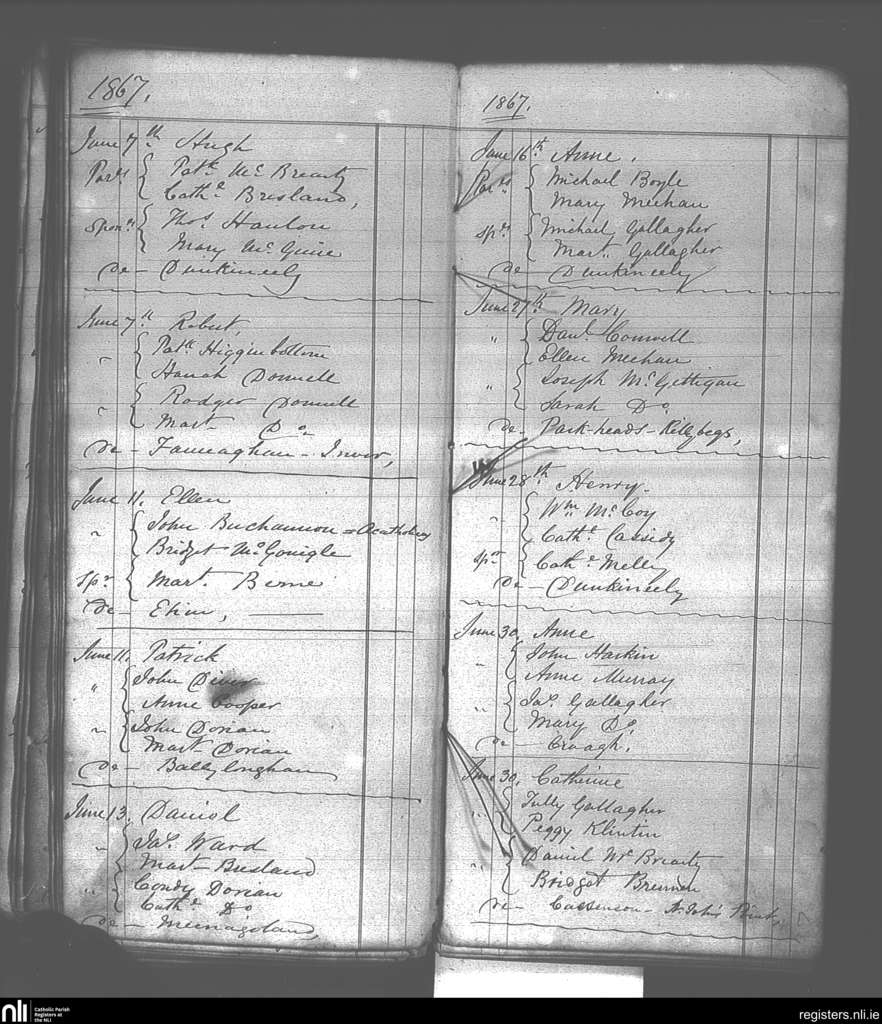 1867.
June 7th Hugh
Par.ts Pat.k McBrearty
Cath.e Bresland,
Spon.rs Thos. Hanlon
Mary McGuire
de — Dunkineely
June 7th Robert,
" Pat.k Higginbottom
Hanah Donnell
" Rodger Donnell
Mart Do
de — Inver,
June 11. Ellen
" John Buchannon a Acatholic
Bridget McGonigle
Spr Mart. Berne
de — Elim,
June 11. Patrick
" John
Anne Cooper
" John Dorian
Mart Dorian
de — Ballyloughan
June 13. Daniel
" Jas. Ward
Mart — Bresland
" Condy Dorian
Cath.e Do
de — Meenagolan,
1867.
June 16th Anne.
Par.ts Michael Boyle
Mary Meehan
Sp.rs Michael Gallagher
Mart. Gallagher
de — Dunkineely
June 27th Mary
" Danl. Conwell
Ellen Meehan
" Joseph McGettigan
Sarah Do
de — Park-heads — Killybegs,
June 28th Henry.
" Wm McCoy
Cath.e Cassidy
Spr Cath.e Melly
de — Dunkineely
June 30. Anne
" John Harkin
Anne Murray
" Jas. Gallagher
Mary Do.
de — Croagh.
June 30. Catherine
" Tully Gallagher
Peggy Klintin
" Daniel McBrearty
Bridget Brennen
de — St. John's Point,
nli
Catholic Parish
Registers at
the NLI
registers.nli.ie